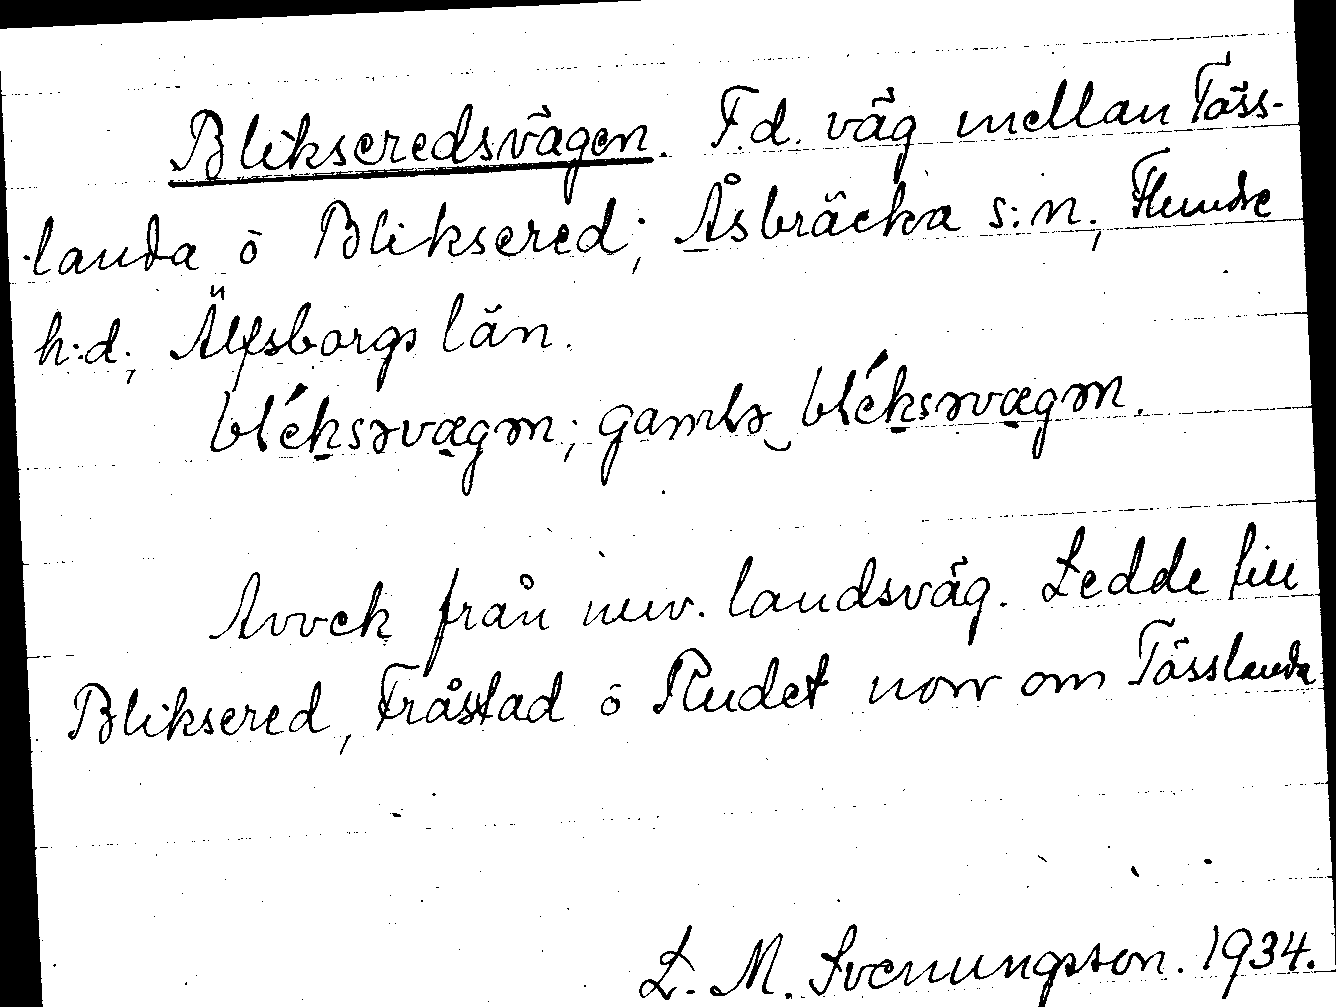 Blikseredsvägen. F.d. väg mellan Töss-
landa o Bliksered; Åsbräcka s:n, Flundre
h:d, Älfsborgs län.
bléksəvægən; gamlə bléksəvægən.
Avvek från nuv. landsväg. Ledde till
Bliksered, Fråstad o Rudet norr om Tösslanda
L. M. Svenungsson. 1934.